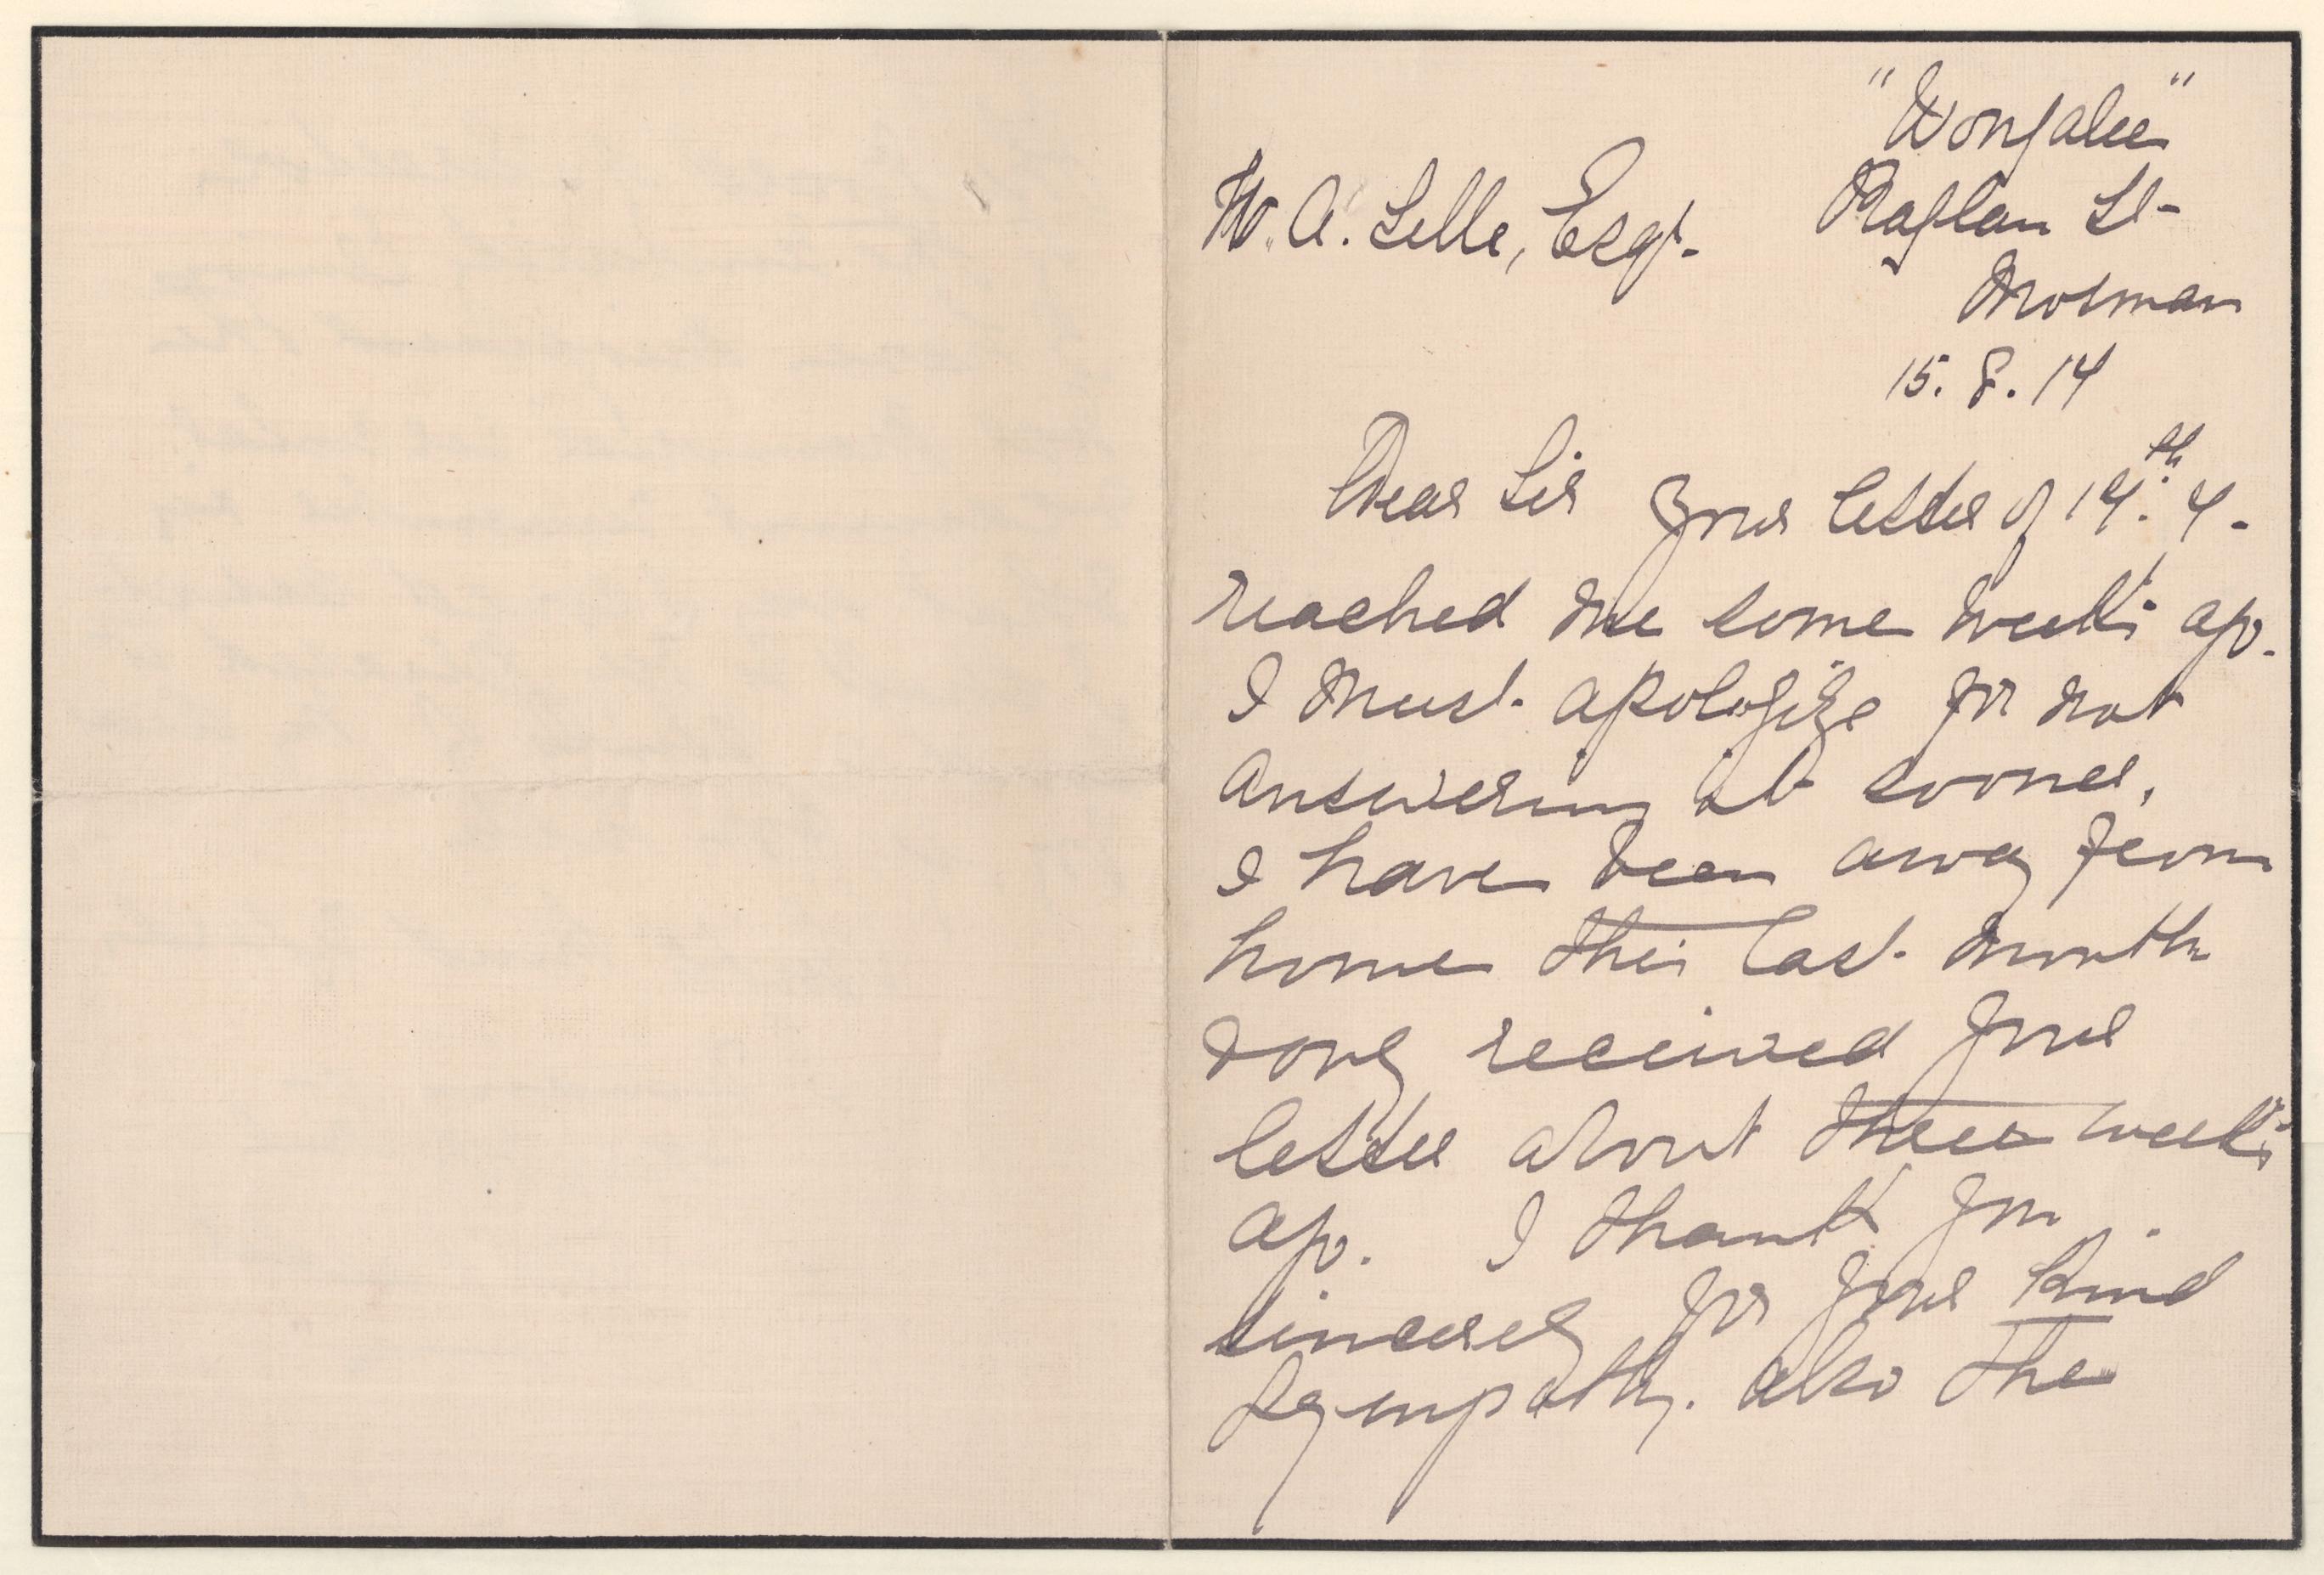 "Wongalee"
Raglan St-
Mosman
15. 8. 14
W. A. Selle, Esqr.
Dear Sir Your letter of 14th. 4-
reached me some weeks ago.
I must apologize for not
answering it sooner,
I have been away from
home this last month
& only received your
letter about three weeks
ago. I thank you
sincerely for your kind
sympathy. also the